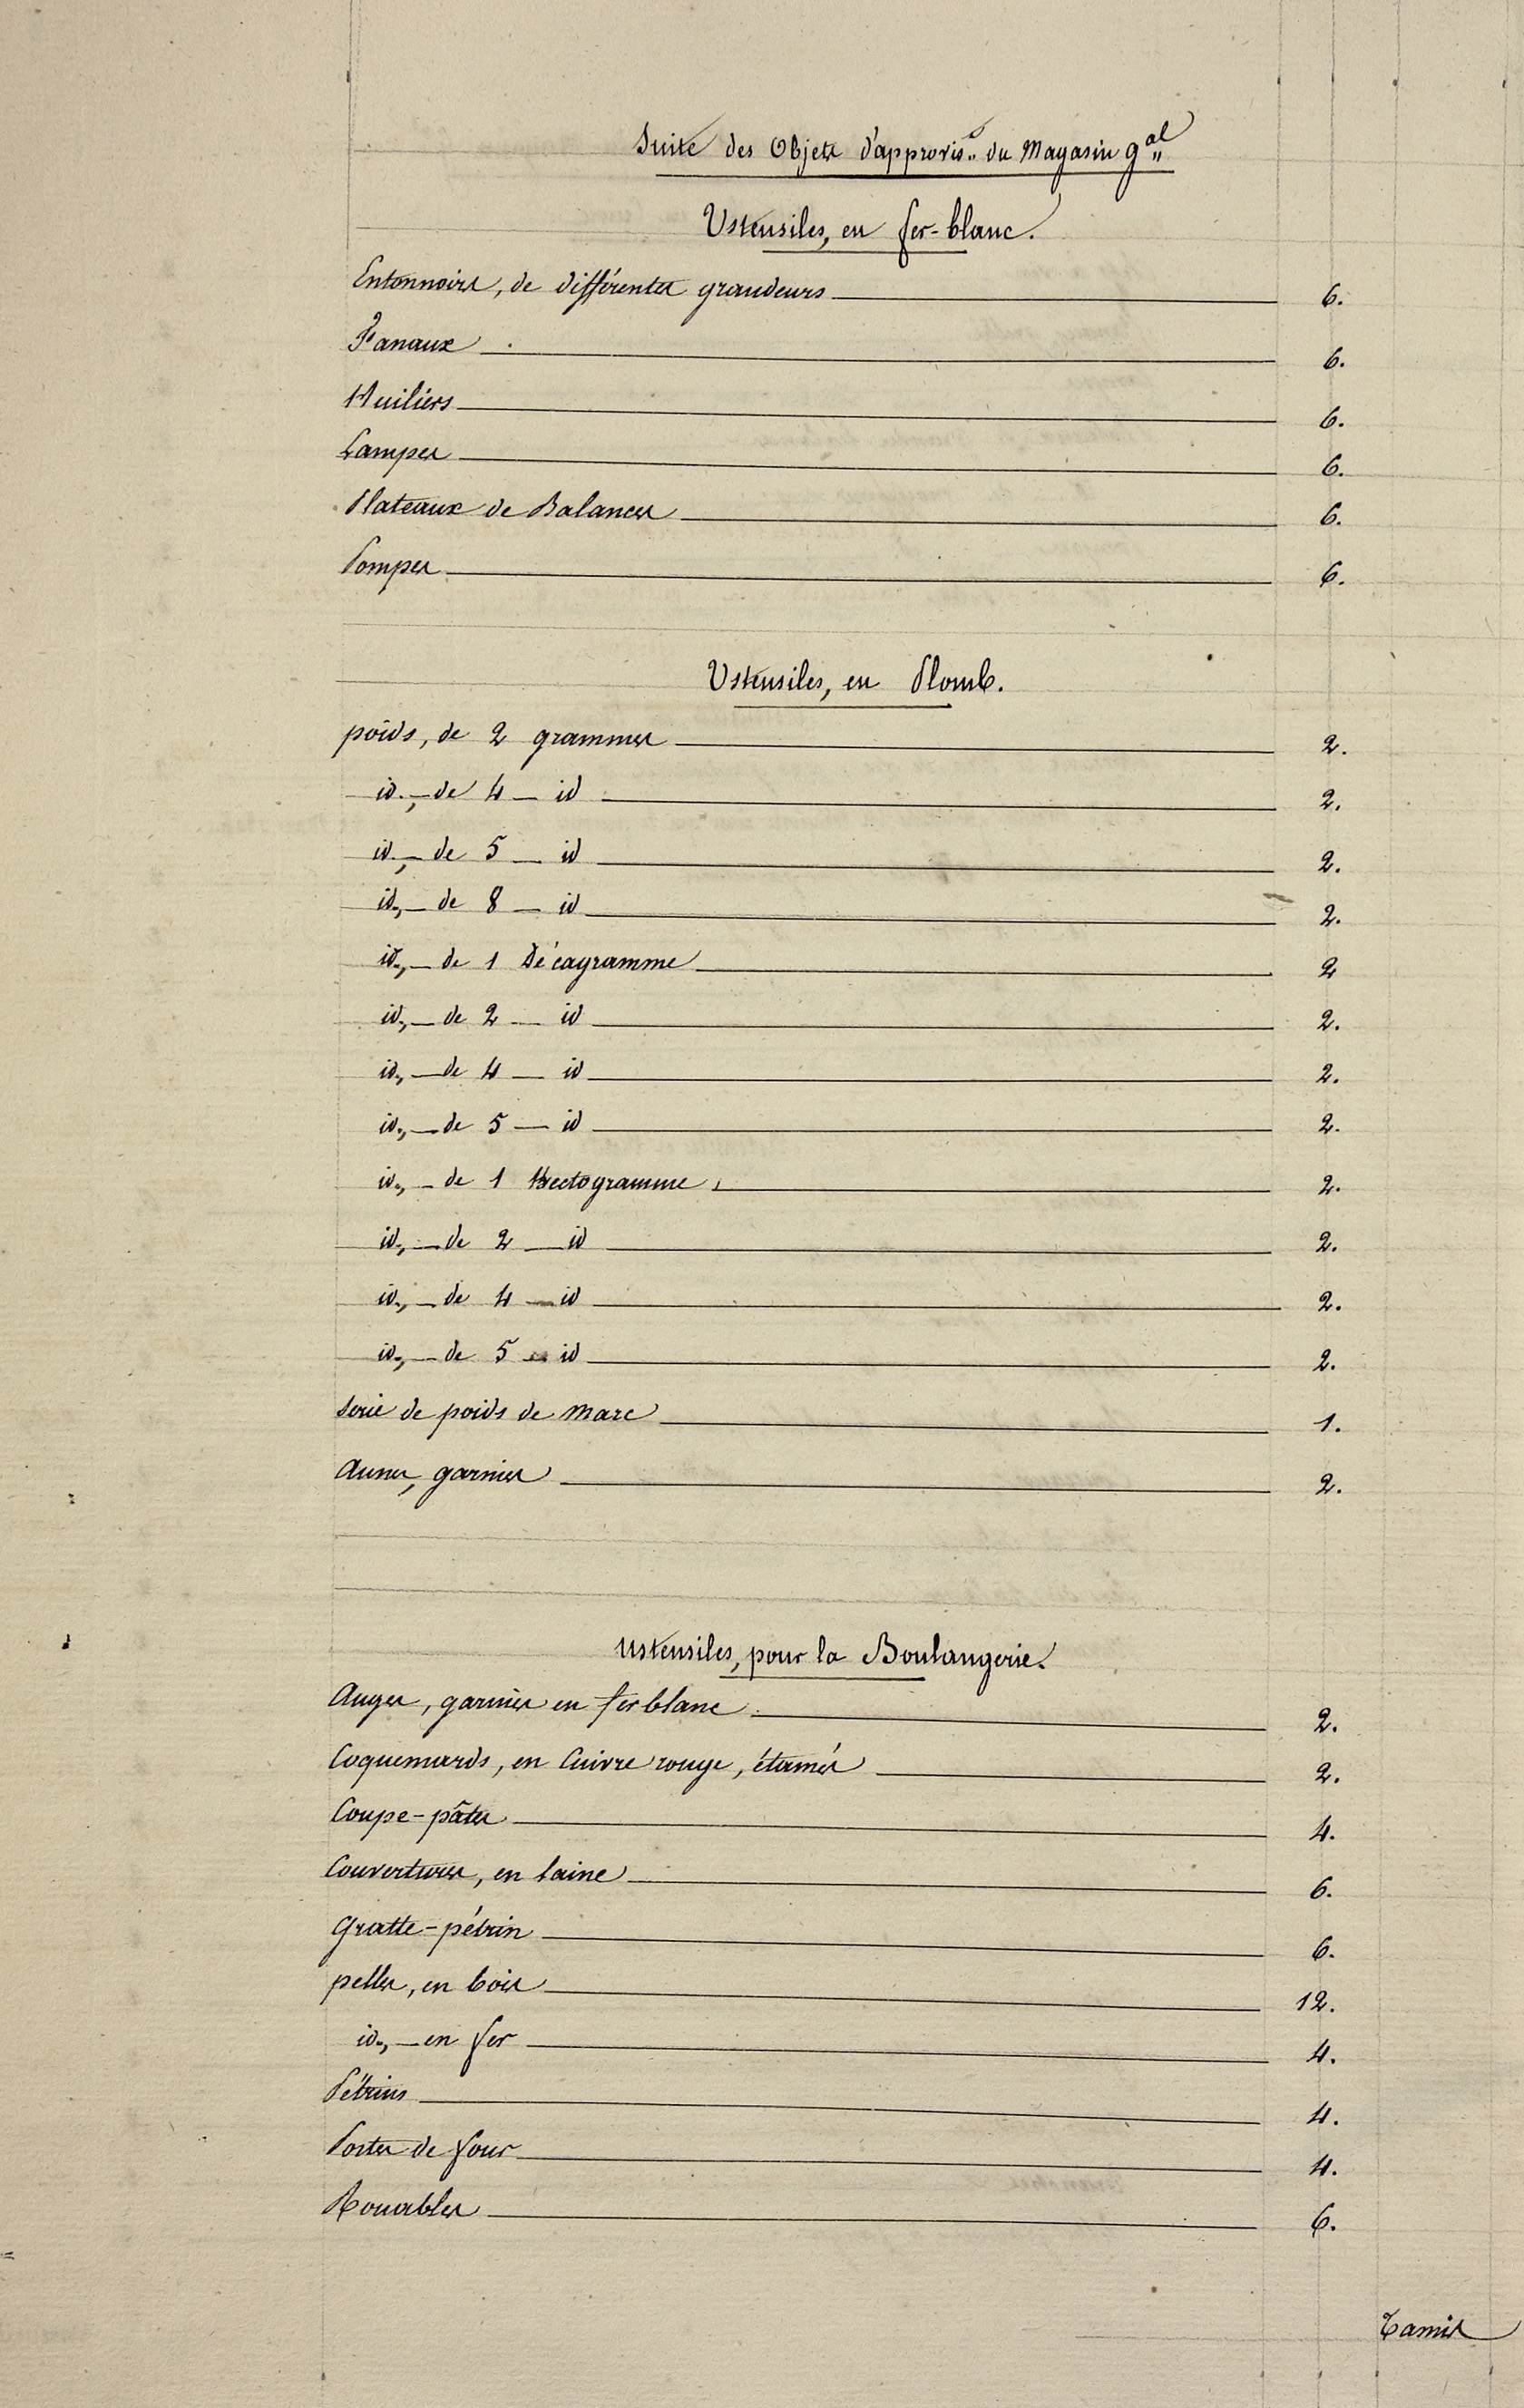 Suite des Objets d'approvis.t du Magasin g.al
Ustensiles, en fer-blanc.
Entonnoirs, de différentes grandeurs 6.
Fanaux 6.
Huiliers 6.
Lampes 6.
Plateaux de Balances 6.
Pompes 6.
Ustensiles, en Plomb.
poids, de 2 grammes 2.
id., de 4 id 2.
id., de 5 id 2.
id., de 8 id 2.
id., de 1 Décagramme 2
id., de 2 id 2.
id., de 4 id 2.
id., de 5 id 2.
id., de 1 Hectogramme, 2.
id., de 2 id 2.
id., de 4 id 2.
id., de 5 id 2.
Serie de poids de Marc 1.
Aunes, garnies 2.
Ustensiles, pour la Boulangerie.
Auges, garnies en fer blanc 2.
Coquemards, en Cuivre rouge, étamés 2.
Coupe-pâtes 4.
Couvertures, en laine 6.
Gratte-pétrin 6.
pelles, en bois 12.
id., en fer 4.
Pétrins 4.
Portes de four 4.
Rouables 6.
Tamis